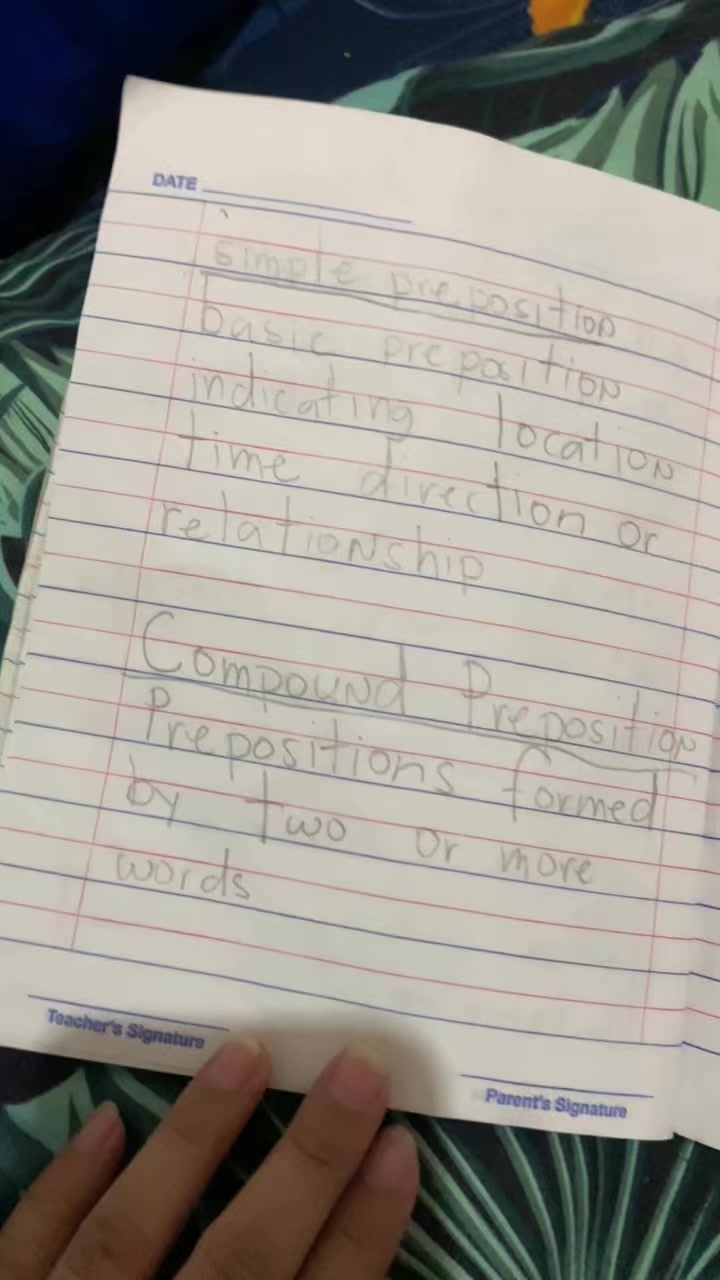 DATE
simple preposition
basic preposition
indicating location
time direction or
relationship
Compound Preposition
Prepositions formed
by two or more
words
Teacher's Signature
Parent's Signature